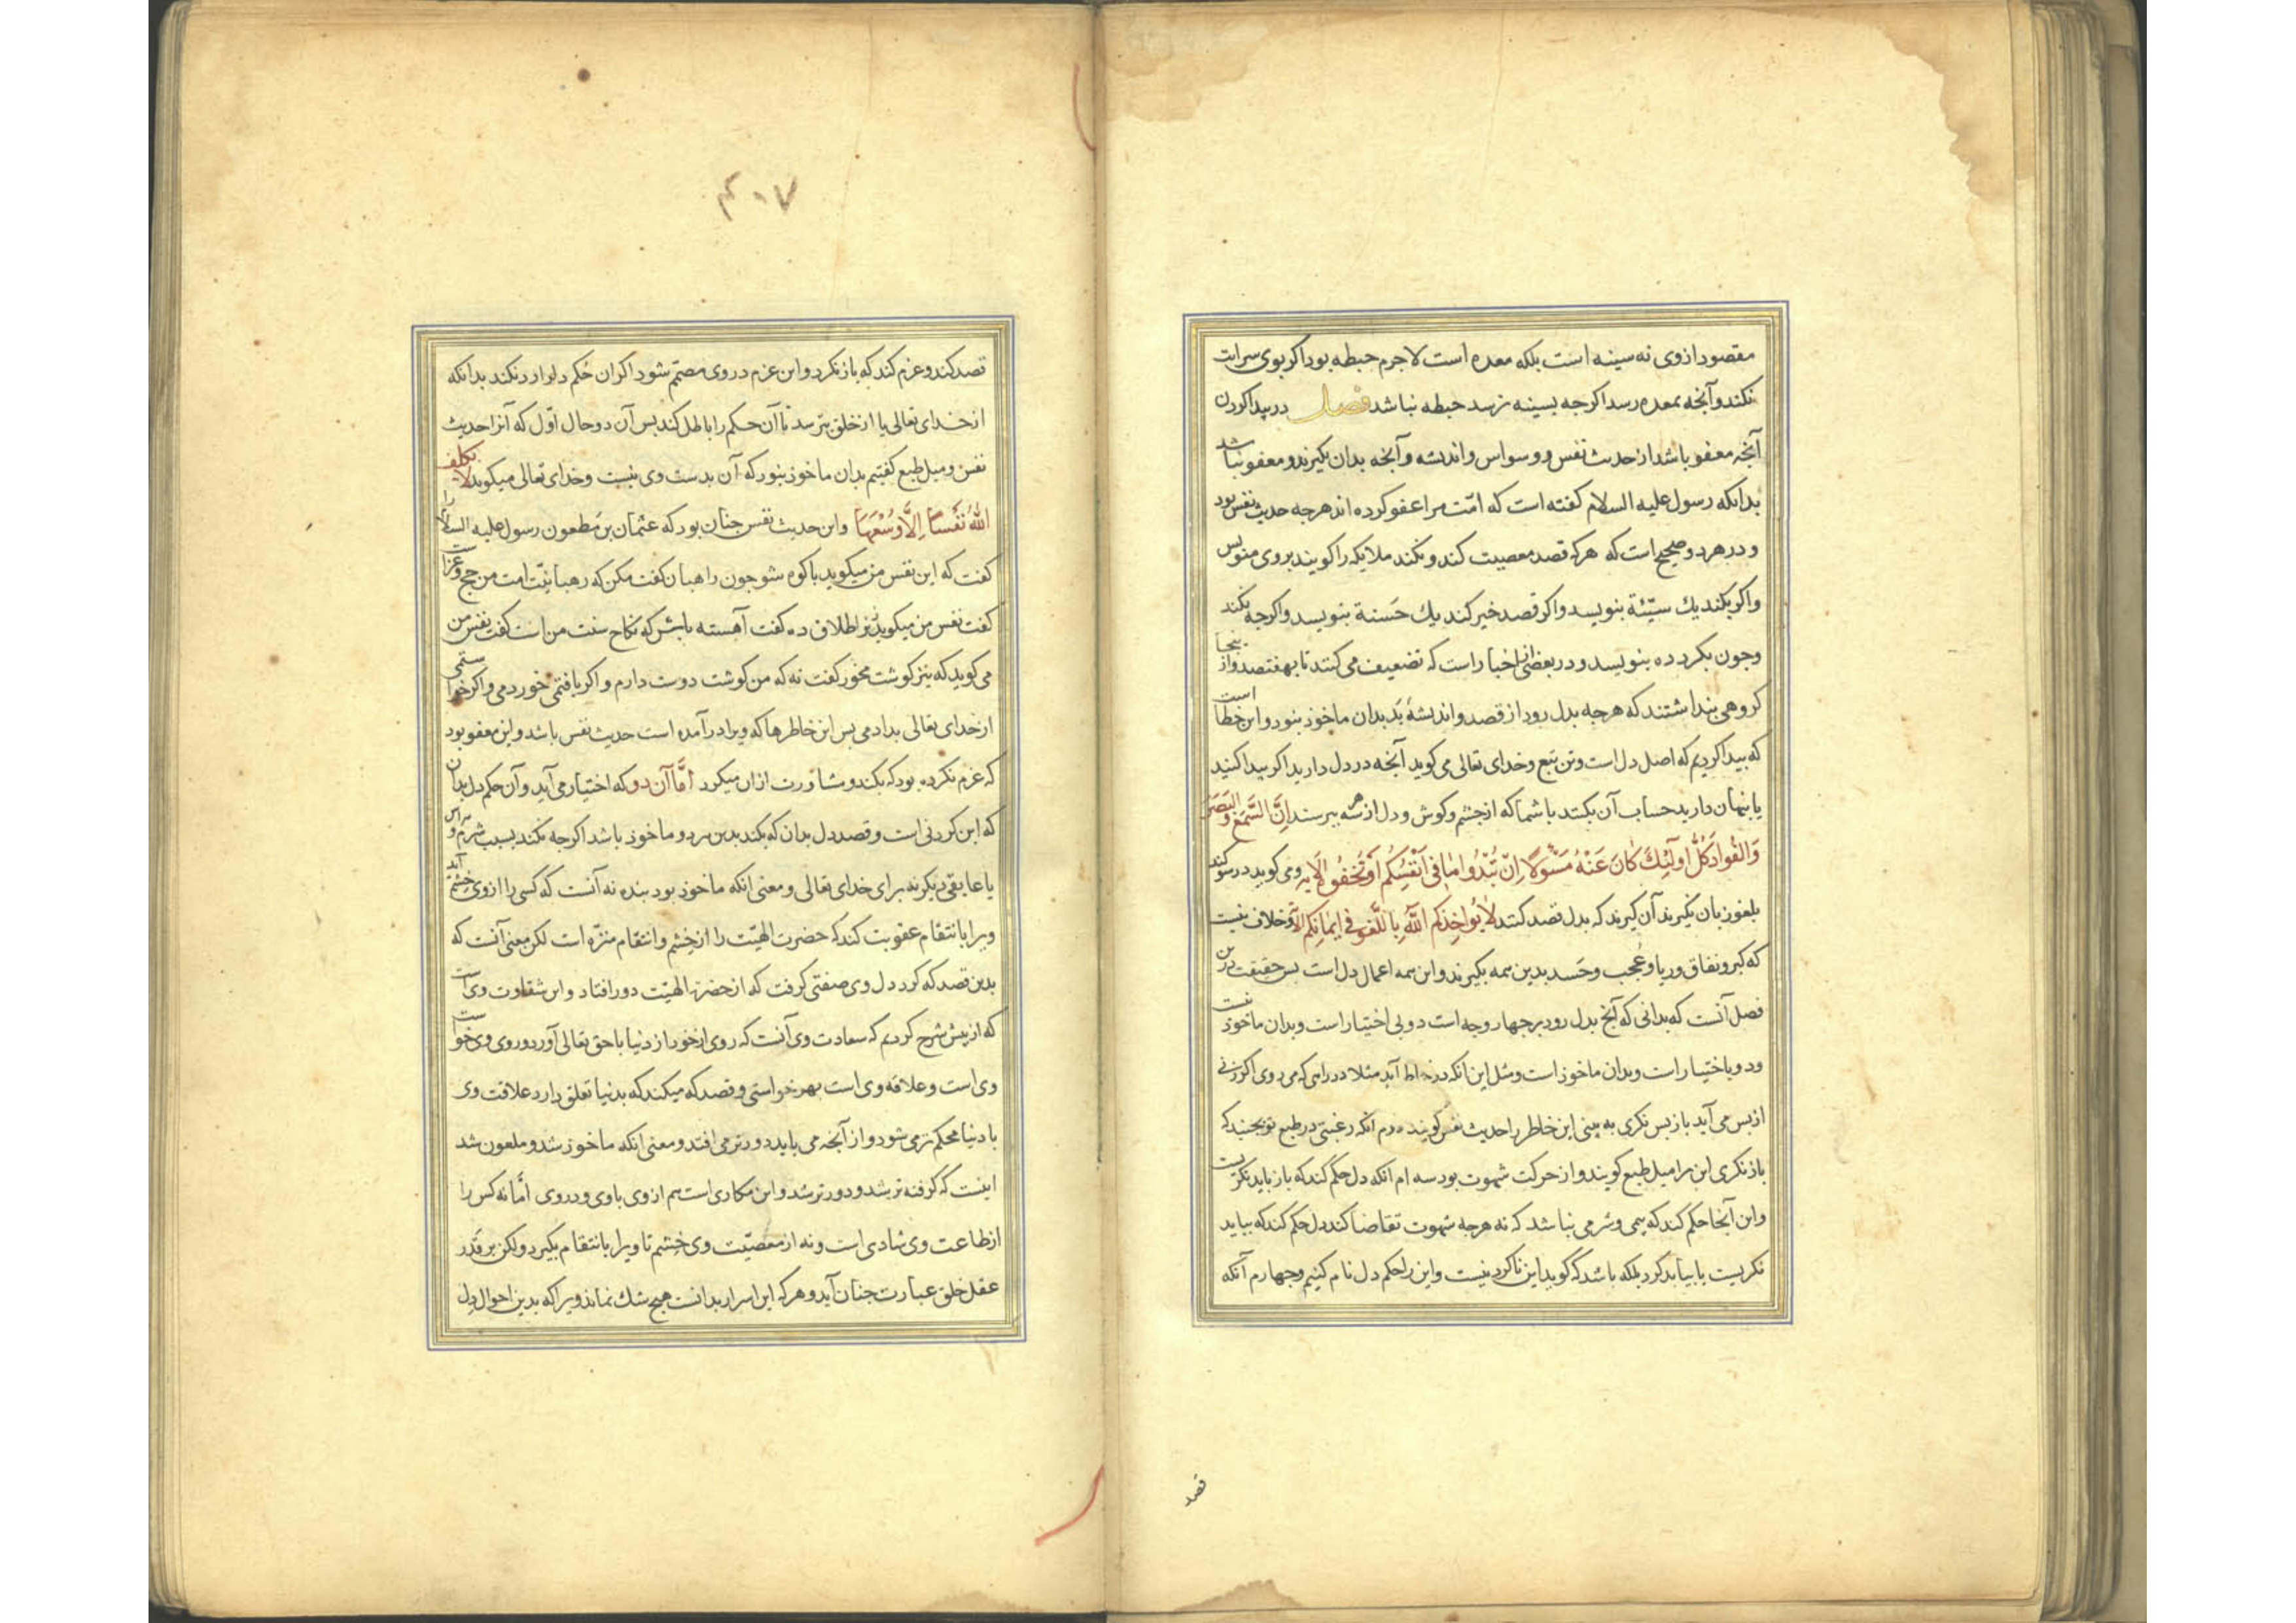 مقصود ازوی نه سینه است بلکه معده است لاجرم حبطه بود اکر بوی سرایت
نکند وآنجه بمعده رسد اکرجه بسینه نرسد حبطه نباشد فصل در پیدا کردن
آنجه معفو باشد از حدیث نفس و وسواس واندیشه وآنجه بدان بکیرند ومعفو نباشد
بدانکه رسول علیه السلام کفته است که امّت مرا عفو کرده اند هرجه حدیث نفس بود
و در هر دو صحیح است که هرکه قصد معصیت کند ونکند ملایکه را کویند بروی منویس
واکر بکند یك سیّئة بنویسد واکر قصد خیر کند یك حَسنة بنویسد واکرجه نکند
وجون بکرد ده بنویسد ودر بعضی از اخبار است که تضعیف می کنند تا بهفتصد وازینجا
کروهی بنداشتند که هرجه بدل رود از قصد واندیشهٔ بَد بدان ماخوذ نبود واین خطا است
که بیدا کردیم که اصل دل است وتن تبع وخدای تعالی می کوید آنجه در دل دارید اکر بیدا کنید
یا بنهان دارید حساب آن بکند با شما که از جشم وکوش ودل از هر سه ببرسند اِنَّ السَّمْعَ وَالبَصَرَ
وَالفُوادَ كُلُّ اولَئِكَ كَانَ عَنْهُ مَسْئولًا اِنْ تُبْدُوا مَا فِی اَنْفُسِكُم اَوْ تُخْفُوهُ الآیه ومی کوید در سوکند
بلغو زبان نکیرند آن کیرند که بدل قصد کنند لَا يُواخِذُكُم اللَّهُ بِاللَّغْوِ فِی اَیْمَانِكُم الآیه وخلاف نیست
که کبر ونفاق وریا وعُجب وحَسد بدین همه بکیرند واین همه اعمال دل است بس حقیقت درین
فصل آنست که بدانی که آنج بدل رود بر جهار وجه است دو بی اختیار است وبدان ماخوذ نیست
ودو باختیار است وبدان ماخوذ است ومثل این انکه در خاطر آید مثلا در راهی که می روی اکر زنی
از بس می آید باز بس نکری به بینی این خاطر را حدیث نفس کویند دوم انکه رغبتی در طبع تو بجنبد که
باز نکری این را میل طبع کویند واز حرکت شهوت بود سه ام انکه دل حکم کند که باز باید نکریست
واین آنجا حکم کند که بیمی وشرمی نباشد که نه هرجه شهوت تقاضا کند دل حکم کند که بباید
نکریست یا بباید کرد بلکه باشد که کوید این ناکردنیست واین را حکم دل نام کنیم وجهارم آنکه
قصد
۴۰۷
قصد کند وعزم کند که باز نکرد واین عزم در وی مصمّم شود اکر آن حُکم دل را رد نکند بدانکه
از خدای تعالی یا از خلق بترسد تا آن حکم را باطل کند بس آن دو حال اوّل که آنرا حدیث
نفس ومیل طبع کفتیم بدان ماخوذ نبود که آن بدست وی نیست وخدای تعالی میکوید لا یکلف
اللهُ نَفْسًا اِلَّا وُسْعَهَا واین حدیث نفس جنان بود که عثمان بن مظعون رسول علیه السلام را
کفت که این نفس من میکوید با کوه شو جون راهبان کفت مکن که رهبانیّت امت من حج وغزا است
کفت نفس من میکوید زنرا طلاق ده کفت آهسته باش که نکاح سنت من است کفت نفس من
می کوید که نیز کوشت مخور کفت نه که من کوشت دوست دارم واکر یافتمی خوردمی واکر خواستمی
از خدای تعالی بدادمی بس این خاطرها که ویرا در آمده است حدیث نفس باشد واین معفو بود
که عزم نکرده بود که بکند ومشاورت ازان میکرد امَّا آن دو که اختیار می آید وآن حکم دل بدان
که این کردنی است وقصد دل بدان که بکند بدین مرد وماخوذ باشد اکرجه نکند بسبب شرم وهراس
یا عایقی دیکر نه برای خدای تعالی ومعنی انکه ماخوذ بود بنده نه آنست که کسی را ازوی خشم آید
ویرا بانتقام عقوبت کند که حضرت الهیّت را از خشم وانتقام منزّه است لکن معنی آنست که
بدین قصد که کرد دل وی صفتی کرفت که از حضرت الهیّت دور افتاد واین شقاوت وی است
که از پیش شرح کردیم که سعادت وی آنست که روی از خود از دنیا با حق تعالی آورد وروی وی خواست
وی است وعلاقه وی است بهر خواستی وقصد که میکند که بدنیا تعلق دارد علاقت وی
با دنیا محکم تر می شود واز آنجه می باید دورتر می افتد ومعنی انکه ماخوذ شد وملعون شد
اینست که کرفته تر شد ودورتر شد واین مکاری است هم ازوی باوی ودروی امّا نه کس را
از طاعت وی شادی است ونه از معصیّت وی خشم تا ویرا بانتقام بکیرد ولکن بر قَدر
عقل خلق عبارت جنان آید وهرکه این اسرار بدانست هیج شك نماند ویرا که بدین احوال دل